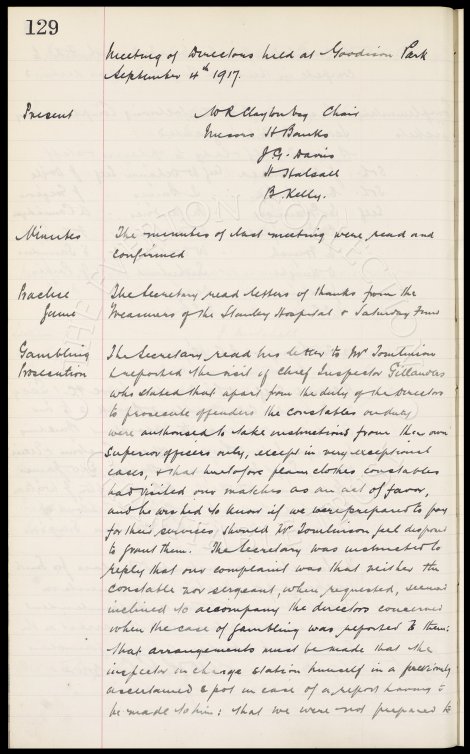 129
Meeting of Directors held at Goodison Park
September 4th 1917.
Present
W R Clayton Esq Chair
Messrs H Banks
J. Davis
H Halsall
B. Kelly.
Minutes
The minutes of last meeting were read and
confirmed
Practice
Game
The Secretary read letters of thanks from the
Treasurers of the Stanley Hospital & Saturday Fund
Gambling
Prosecution
The Secretary read his letter to Mr Tomlinson
& reported the visit of Chief Inspector
who stated that apart from the duty of the Directors
to prosecute offenders the constables on duty
were authorised to take instructions from their own
superior officers only, except in very exceptional
cases, & that heretofore plain clothes constables
had visited our matches as an act of favor,
and he wished to know if we were prepared to pay
for their services should Mr Tomlinson feel disposed
to grant them. The Secretary was instructed to
reply that our complaint was that neither the
constable nor sergeant, when requested, seemed
inclined to accompany the directors concerned
when the case of gambling was reported to them:
that arrangements must be made that the
inspector in charge station himself in a previously
ascertained spot in case of a report having to
be made to him: that we were not prepared to